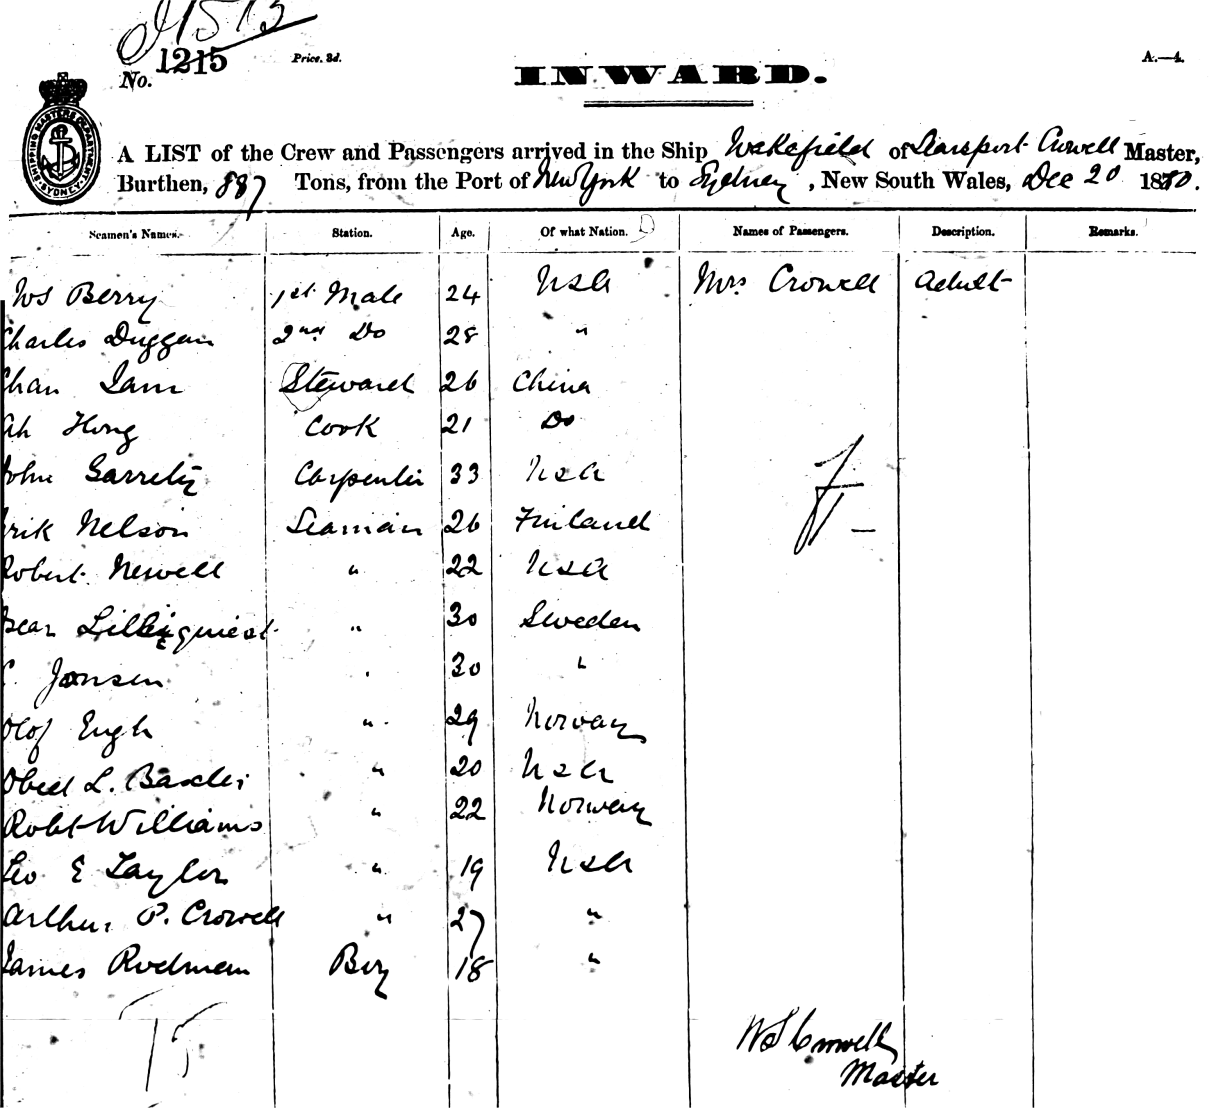 No. 1215
Price, 3d.
INWARD.
A.—4.
SHIPPING MASTERS DEPARTMENT SYDNEY
A LIST of the Crew and Passengers arrived in the Ship Wakefield of Crowell Master,
Burthen, 887 Tons, from the Port of New York to Sydney, New South Wales, Dec 20 1880.
Seamen's Names. Station. Age. Of what Nation. Names of Passengers. Description. Remarks.
WS Berry 1st Mate 24 USA Mrs Crowell adult
Charles Duggan 2nd Do 28 "
Chan Sam Steward 26 China
Ah Hong Cook 21 Do
John Garrety Carpenter 33 USA
Erik Nelson Seaman 26 Finland
Robert Newell " 22 USA
" 30 Sweden
Jansen " 30 "
Olof Engh " 29 Norway
Obed L. " 20 USA
Robt Williams " 22 Norway
Geo E Taylor " 19 USA
Arthur P. Crowell " 27 "
James Rodman Boy 18 "
15
WS Crowell
Master